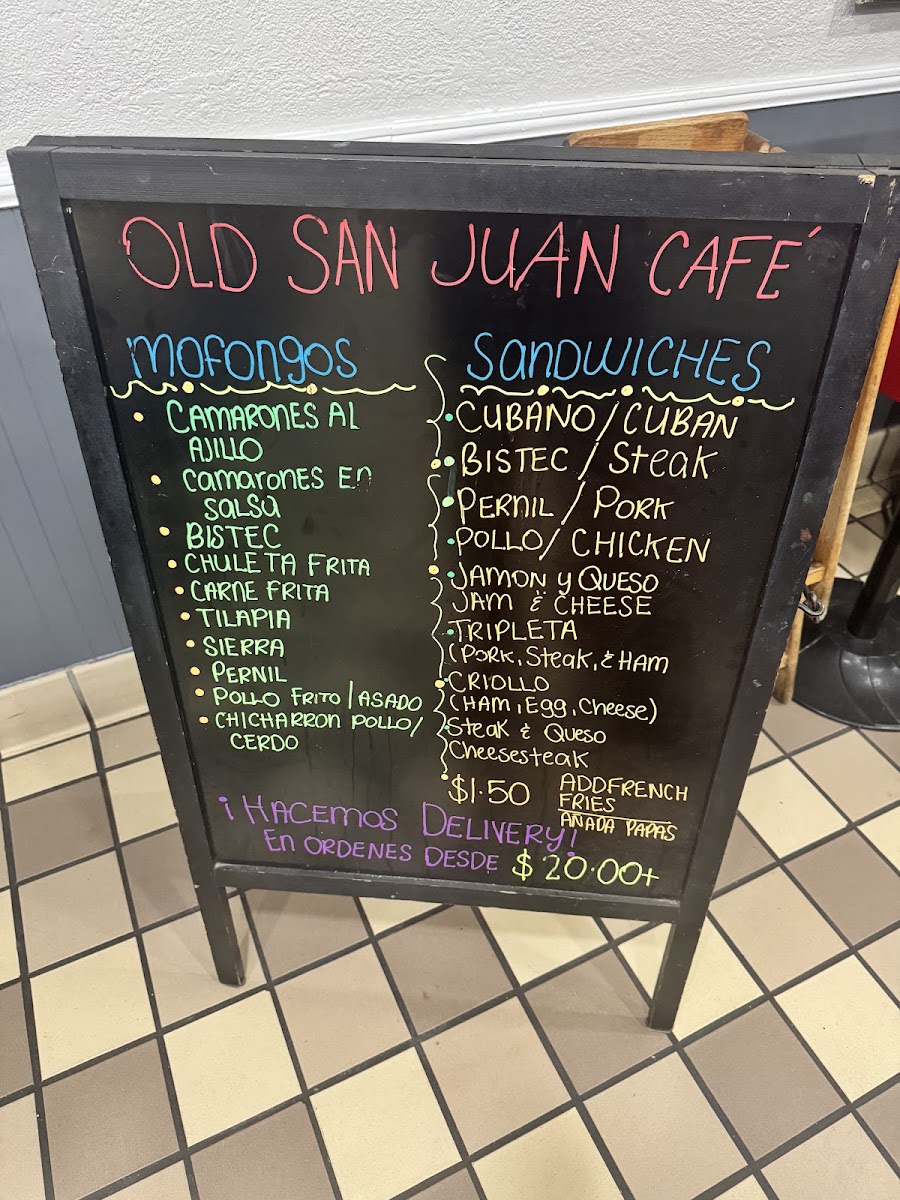 OLD SAN JUAN CAFÉ
mofongos
CAMARONES AL
AJILLO
Camarones En
SALSA
BISTEC
CHULETA FRITA
CARNE FRITA
TILAPIA
SIERRA
PERNIL
POLLO FRITO / ASADO
CHICHARRON POLLO/
CERDO
SANDWICHES
CUBANO / CUBAN
BISTEC / Steak
PERNIL / PORK
POLLO / CHICKEN
JAMON y QUESO
JAM & CHEESE
TRIPLETA
(PORK, Steak, & HAM
CRIOLLO
(HAM, Egg, Cheese)
Steak & Queso
Cheesesteak
$1.50 ADD FRENCH
FRIES
AÑADA PAPAS
¡HACEMOS DELIVERY!
En ORDENES DESDE $20.00+